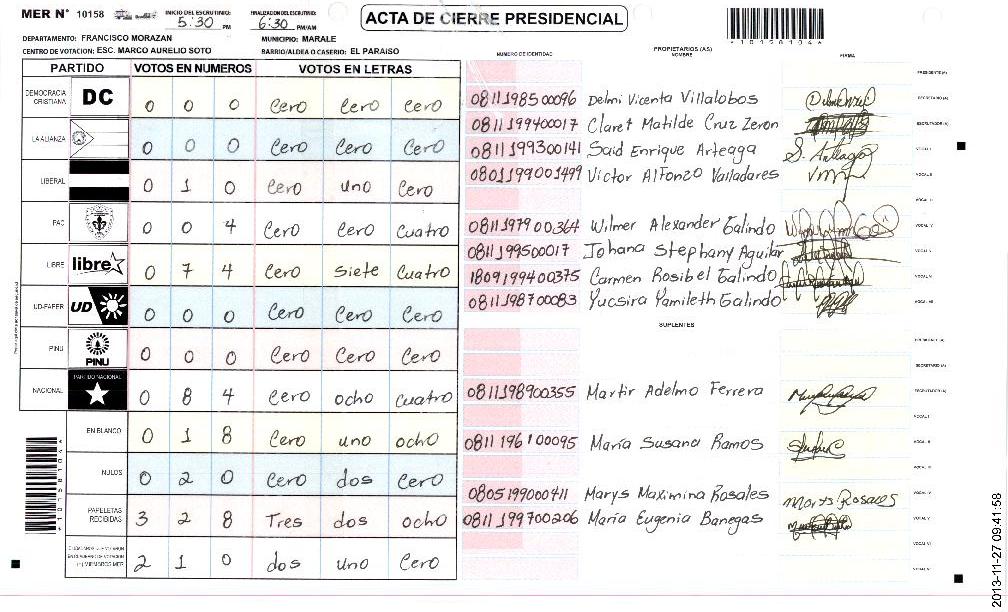 MER N° 10158 INICIO DEL ESCRUTINIO: 5:30 PM FINALIZACION DEL ESCRUTINIO: 6:30 PM/AM
ACTA DE CIERRE PRESIDENCIAL
*10158104*
DEPARTAMENTO: FRANCISCO MORAZAN MUNICIPIO: MARALE
CENTRO DE VOTACION: ESC. MARCO AURELIO SOTO BARRIO/ALDEA O CASERIO: EL PARAISO
NUMERO DE IDENTIDAD PROPIETARIOS (AS) NOMBRE FIRMA
PARTIDO VOTOS EN NUMEROS VOTOS EN LETRAS
DEMOCRACIA CRISTIANA DC 0 0 0 Cero Cero Cero
LA ALIANZA 0 0 0 Cero Cero Cero
LIBERAL 0 1 0 Cero uno Cero
PAC 0 0 4 Cero Cero Cuatro
LIBRE libre 0 7 4 Cero Siete Cuatro
UD-FAPER UD 0 0 0 Cero Cero Cero
PINU PINU 0 0 0 Cero Cero Cero
NACIONAL PARTIDO NACIONAL 0 8 4 Cero ocho Cuatro
EN BLANCO 0 1 8 Cero uno ocho
NULOS 0 2 0 Cero dos Cero
PAPELETAS RECIBIDAS 3 2 8 Tres dos ocho
2 1 0 dos uno Cero
PRESIDENTE (A)
0811198500096 Delmi Vicenta Villalobos SECRETARIO (A)
0811199400017 Claret Matilde Cruz Zeron ESCRUTADOR (A)
0811199300141 Said Enrique Arteaga VOCAL I
0801199001499 Victor Alfonzo Valladares VOCAL II
VOCAL III
0811197900364 Wilmer Alexander Galindo VOCAL IV
081119950017 Johana Stephany Aguilar VOCAL V
1809199400375 Carmen Rosibel Galindo VOCAL VI
0811198700083 Yucsira Yamileth Galindo VOCAL VII
SUPLENTES
PRESIDENTE (A)
SECRETARIO (A)
0811198900355 Martir Adelmo Ferrera ESCRUTADOR (A)
VOCAL I
0811196100095 María Susana Ramos VOCAL II
VOCAL III
0805199000411 Marys Maximina Rosales Marys Rosales VOCAL IV
0811199700206 María Eugenia Banegas VOCAL V
VOCAL VI
VOCAL VII
*10158104*
2013-11-27 09:41:58